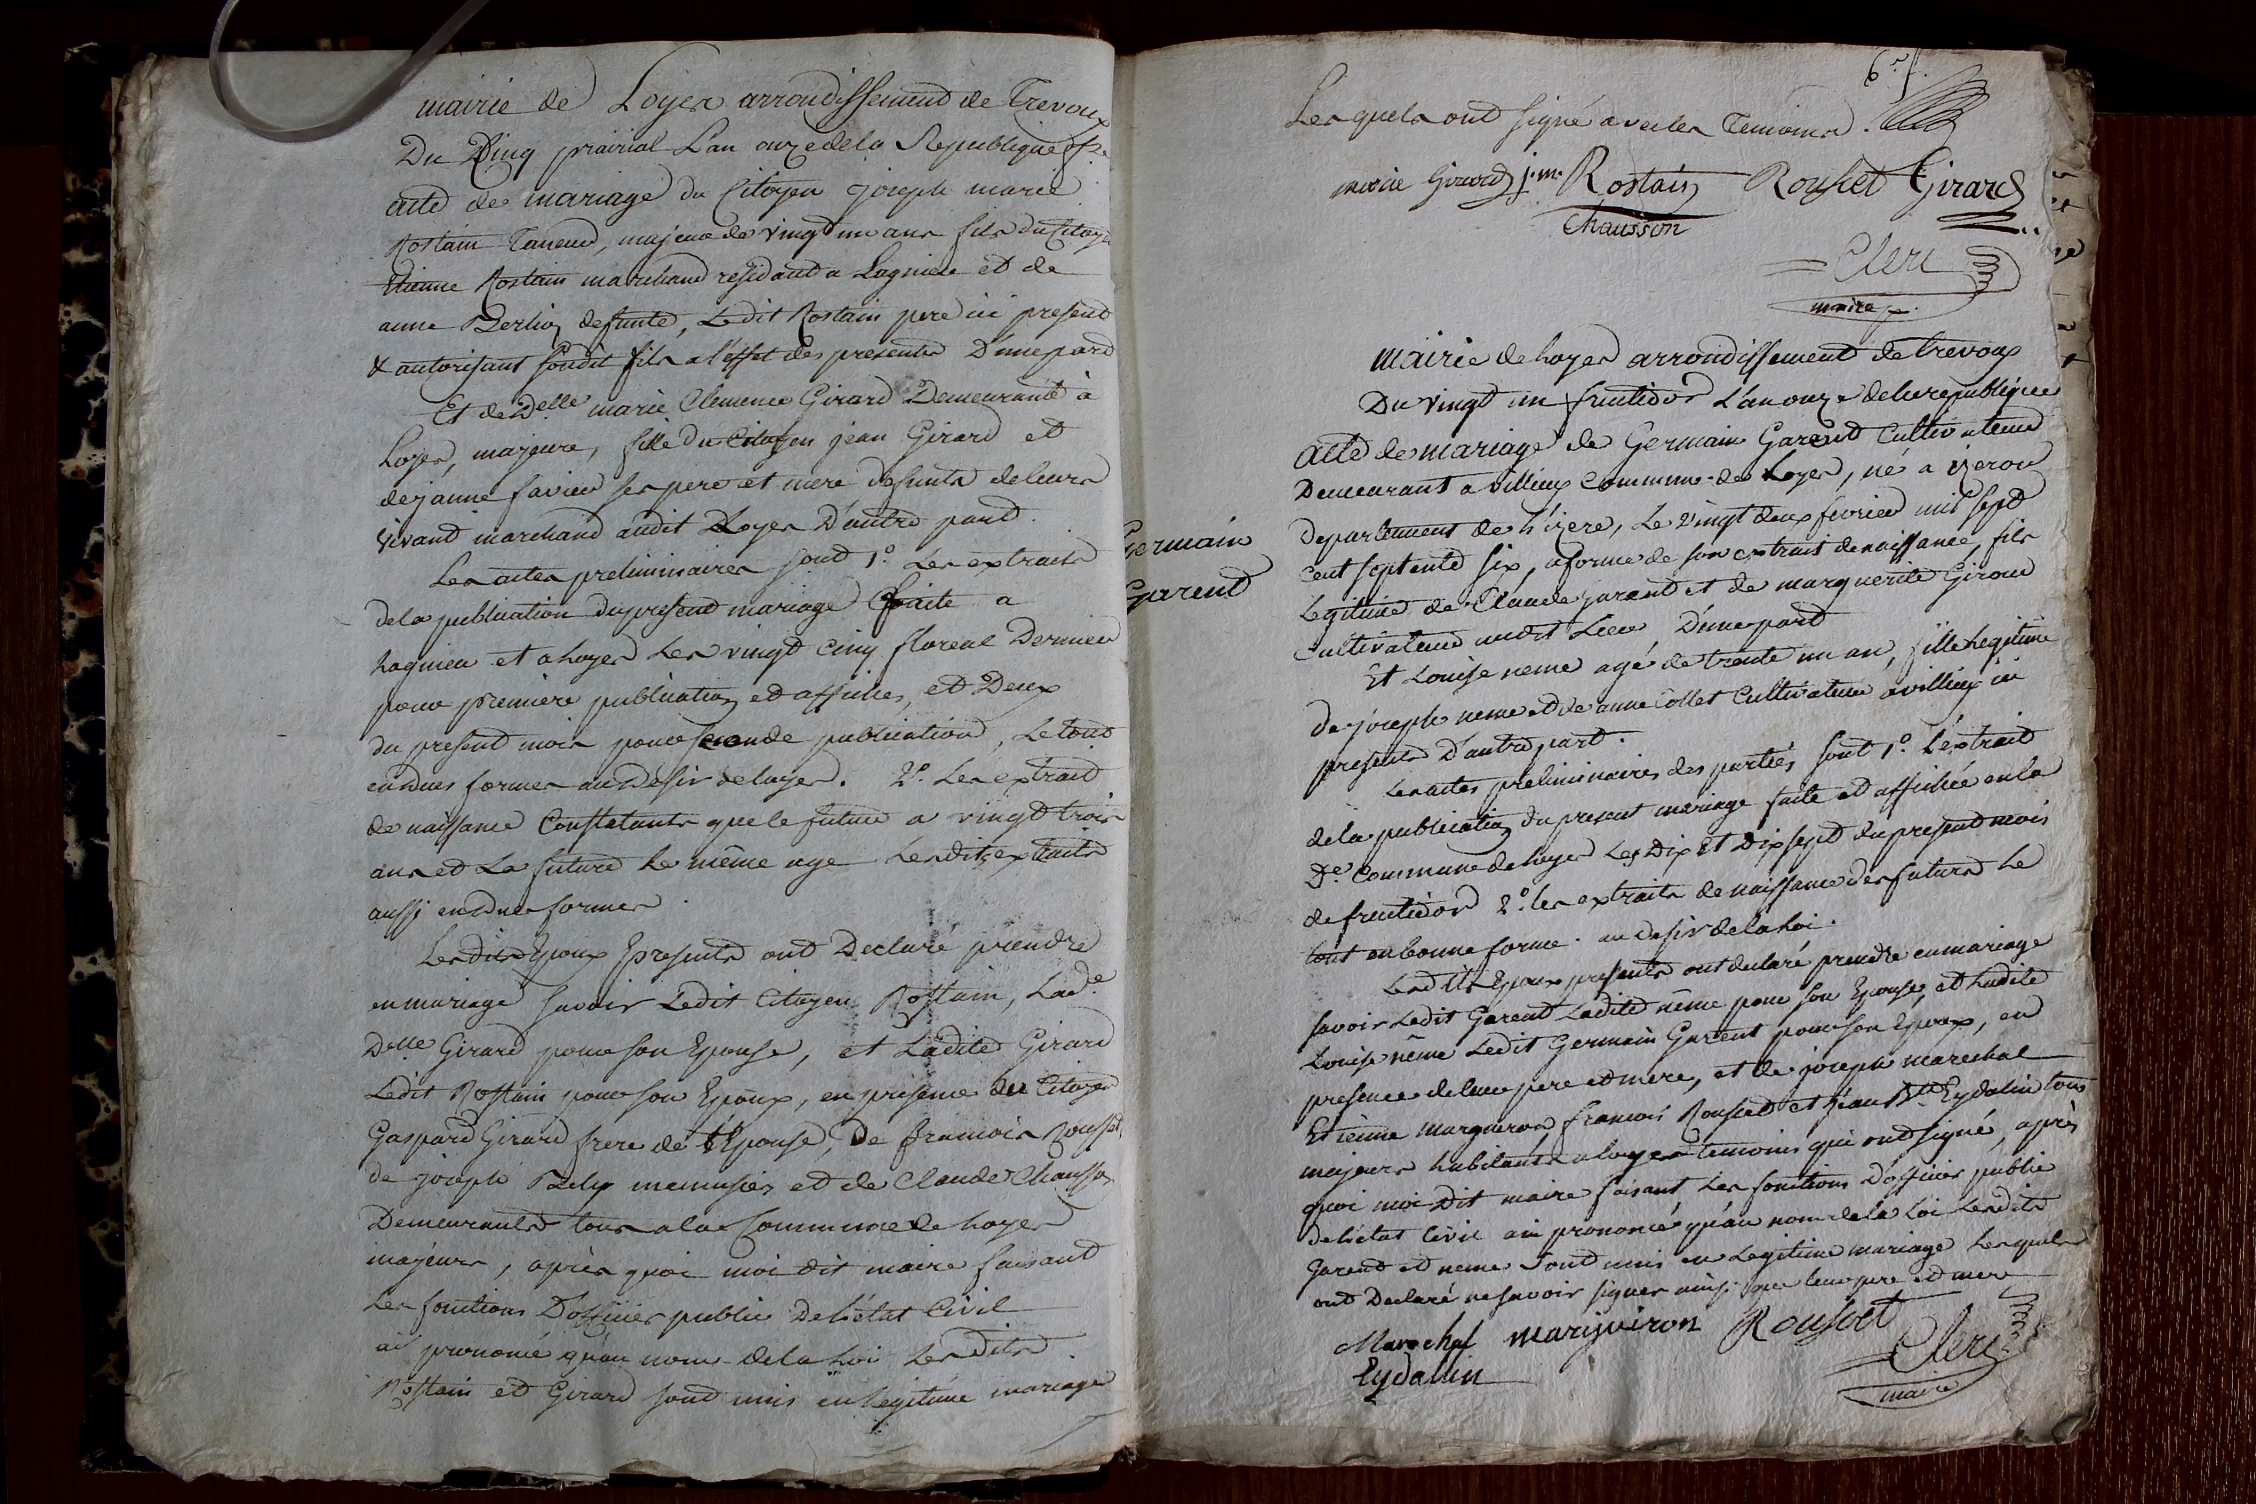 mairie de Loyes arrondissement de Trevoux
Du Cinq prairial L'an onze de la Republique fse
acte de mariage du Citoyen joseph marie
Rostain Taneur, majeur de vingt un ans fils du Citoyen
Etienne Rostain marchand residant a Lagnieu et de
anne Berlioz defunte, Ledit Rostain pere ici present
& autorisant sondit fils a l'effet des presentes D'une part
Et de Delle marie Clemence Girard Demeurante à
Loyes, majeure, fille du Citoyen jean Girard et
de janne favier ses pere et mere defunts de leurs
vivant marchand audit Loyes D'autre part.
Les actes preliminaires sont 1º. Les extraits
de la publication du present mariage faite a
Lagnieu et a Loyes Les vingt cinq floreal Dernier
pour premiere publication et affiches, et Deux
du present mois pour seconde publication, Le tout
en dues formes au Desir de la loi. 2º. Les extrait
de naissance Constatants que le futur a vingt trois
ans et La future Le même age Lesdits extraits
aussi en dues formes.
Lesdits Epoux presents ont Declaré prendre
en mariage savoir Ledit Citoyen Rostain, Lade.
Delle Girard pour son Epouse, et Ladite Girard
Ledit Rostain pour son Epoux, en presence du Citoyen
Gaspard Girard frere de l'Epouse, De francois Rousset,
de joseph menusier et de Claude Chausson
Demeurants tous a la Commune de Loyes
majeurs, après quoi moi dit maire faisant
Les fonctions D'officier public De L'état Civil
ai prononcé qu'au nom de la Loi Lesdits
Rostain et Girard sont unis en Legitime mariage
6e f.
Lesquels ont signé avec les Temoins.
marie Girard j.m. Rostain Rousset Girard
Chausson
Clerc
maire
mairie de Loyes arrondissement de trevoux
Du vingt un fructidor L'an onze de la republique
Germain
Garend
acte de mariage de Germain Garend Cultivateur
Demeurant a villieux Commune de Loyes, né a izeron
departement de L'izere, Le vingt deux fevrier mil sept
cent septente six, a forme de son extrait de naissance, fils
Legitime de Claude garend et de marguerite Giroud
Cultivateur audit Lieu, D'une part
Et Louise neme agé de trente un an, fille Legitime
De joseph neme et de anne Collet Cultivateur a villieux ici
presents D'autre part.
Les actes preliminaires des parties sont 1º. L'extrait
de la publication du present mariage faite et affichée en la
De. Commune de Loyes Les Dix et Dix sept du present mois
de fructidor 2º. les extraits de naissance des futurs Le
tout en bonne forme. au desir de la Loi.
Lesdits Epoux presents ont declaré prendre en mariage
savoir Ledit Garend Ladite néme pour son Epouse, et Ladite
Louise néme Ledit Germain Garent pour son Epoux, en
presence de leur pere et mere, et de joseph marechal
Etienne margueron, francois Rousset et jean Bte Eydalin tous
majeurs habitants a Loyes temoins qui ont signé, après
quoi moi Dit maire faisant Les fonctions D'officier public
de L'état Civil ai prononcé qu'au nom de la Loi Lesdits
Garend et neme sont unis en Legitime mariage Lesquels
ont Declaré ne savoir signer ainsi que leur pere et mere
Marechal marguiron Rousset
Eydallin
Clerc
maire